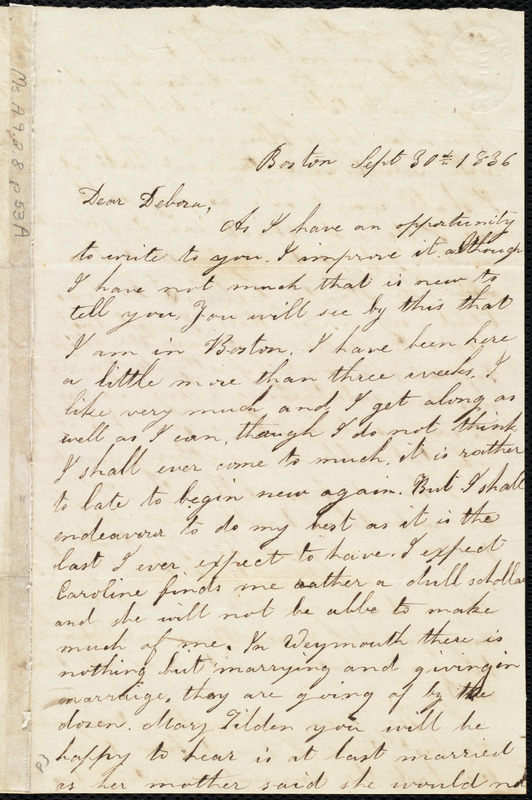 Ms. A 9.2.8 p 53A
Boston Sept 30th 1836
Dear Debora,
As I have an opportunity
to write to you, I improve it although
I have not much that is new to
tell you. You will see by this that
I am in Boston. I have been here
a little more than three weeks. I
like very much and I get along as
well as I can, though I do not think
I shall ever come to much, it is rather
to late to begin new again. But I shall
endeavour to do my best as it is the
last I ever expect to have. I expect
Caroline finds me rather a dull schollar
and she will not be abbe to make
much of me. In Weymouth there is
nothing but marrying and giving in
marriage. they are going of by the
dozen. Mary Tilden you will be
happy to hear is at last married
as her mother said she would not